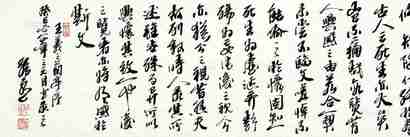 古人云死生亦大矣
豈不痛哉每覽昔
人興感之由若合一契
未嘗不臨文嗟悼不
能喻之於懷固知一
死生為虛誕齊彭
殤為妄作後之視今
亦猶今之視昔悲夫
故列敘時人錄其所
述雖世殊事異所以
興懷其致一也後
之覽者亦將有感於
斯文
王羲之蘭亭序